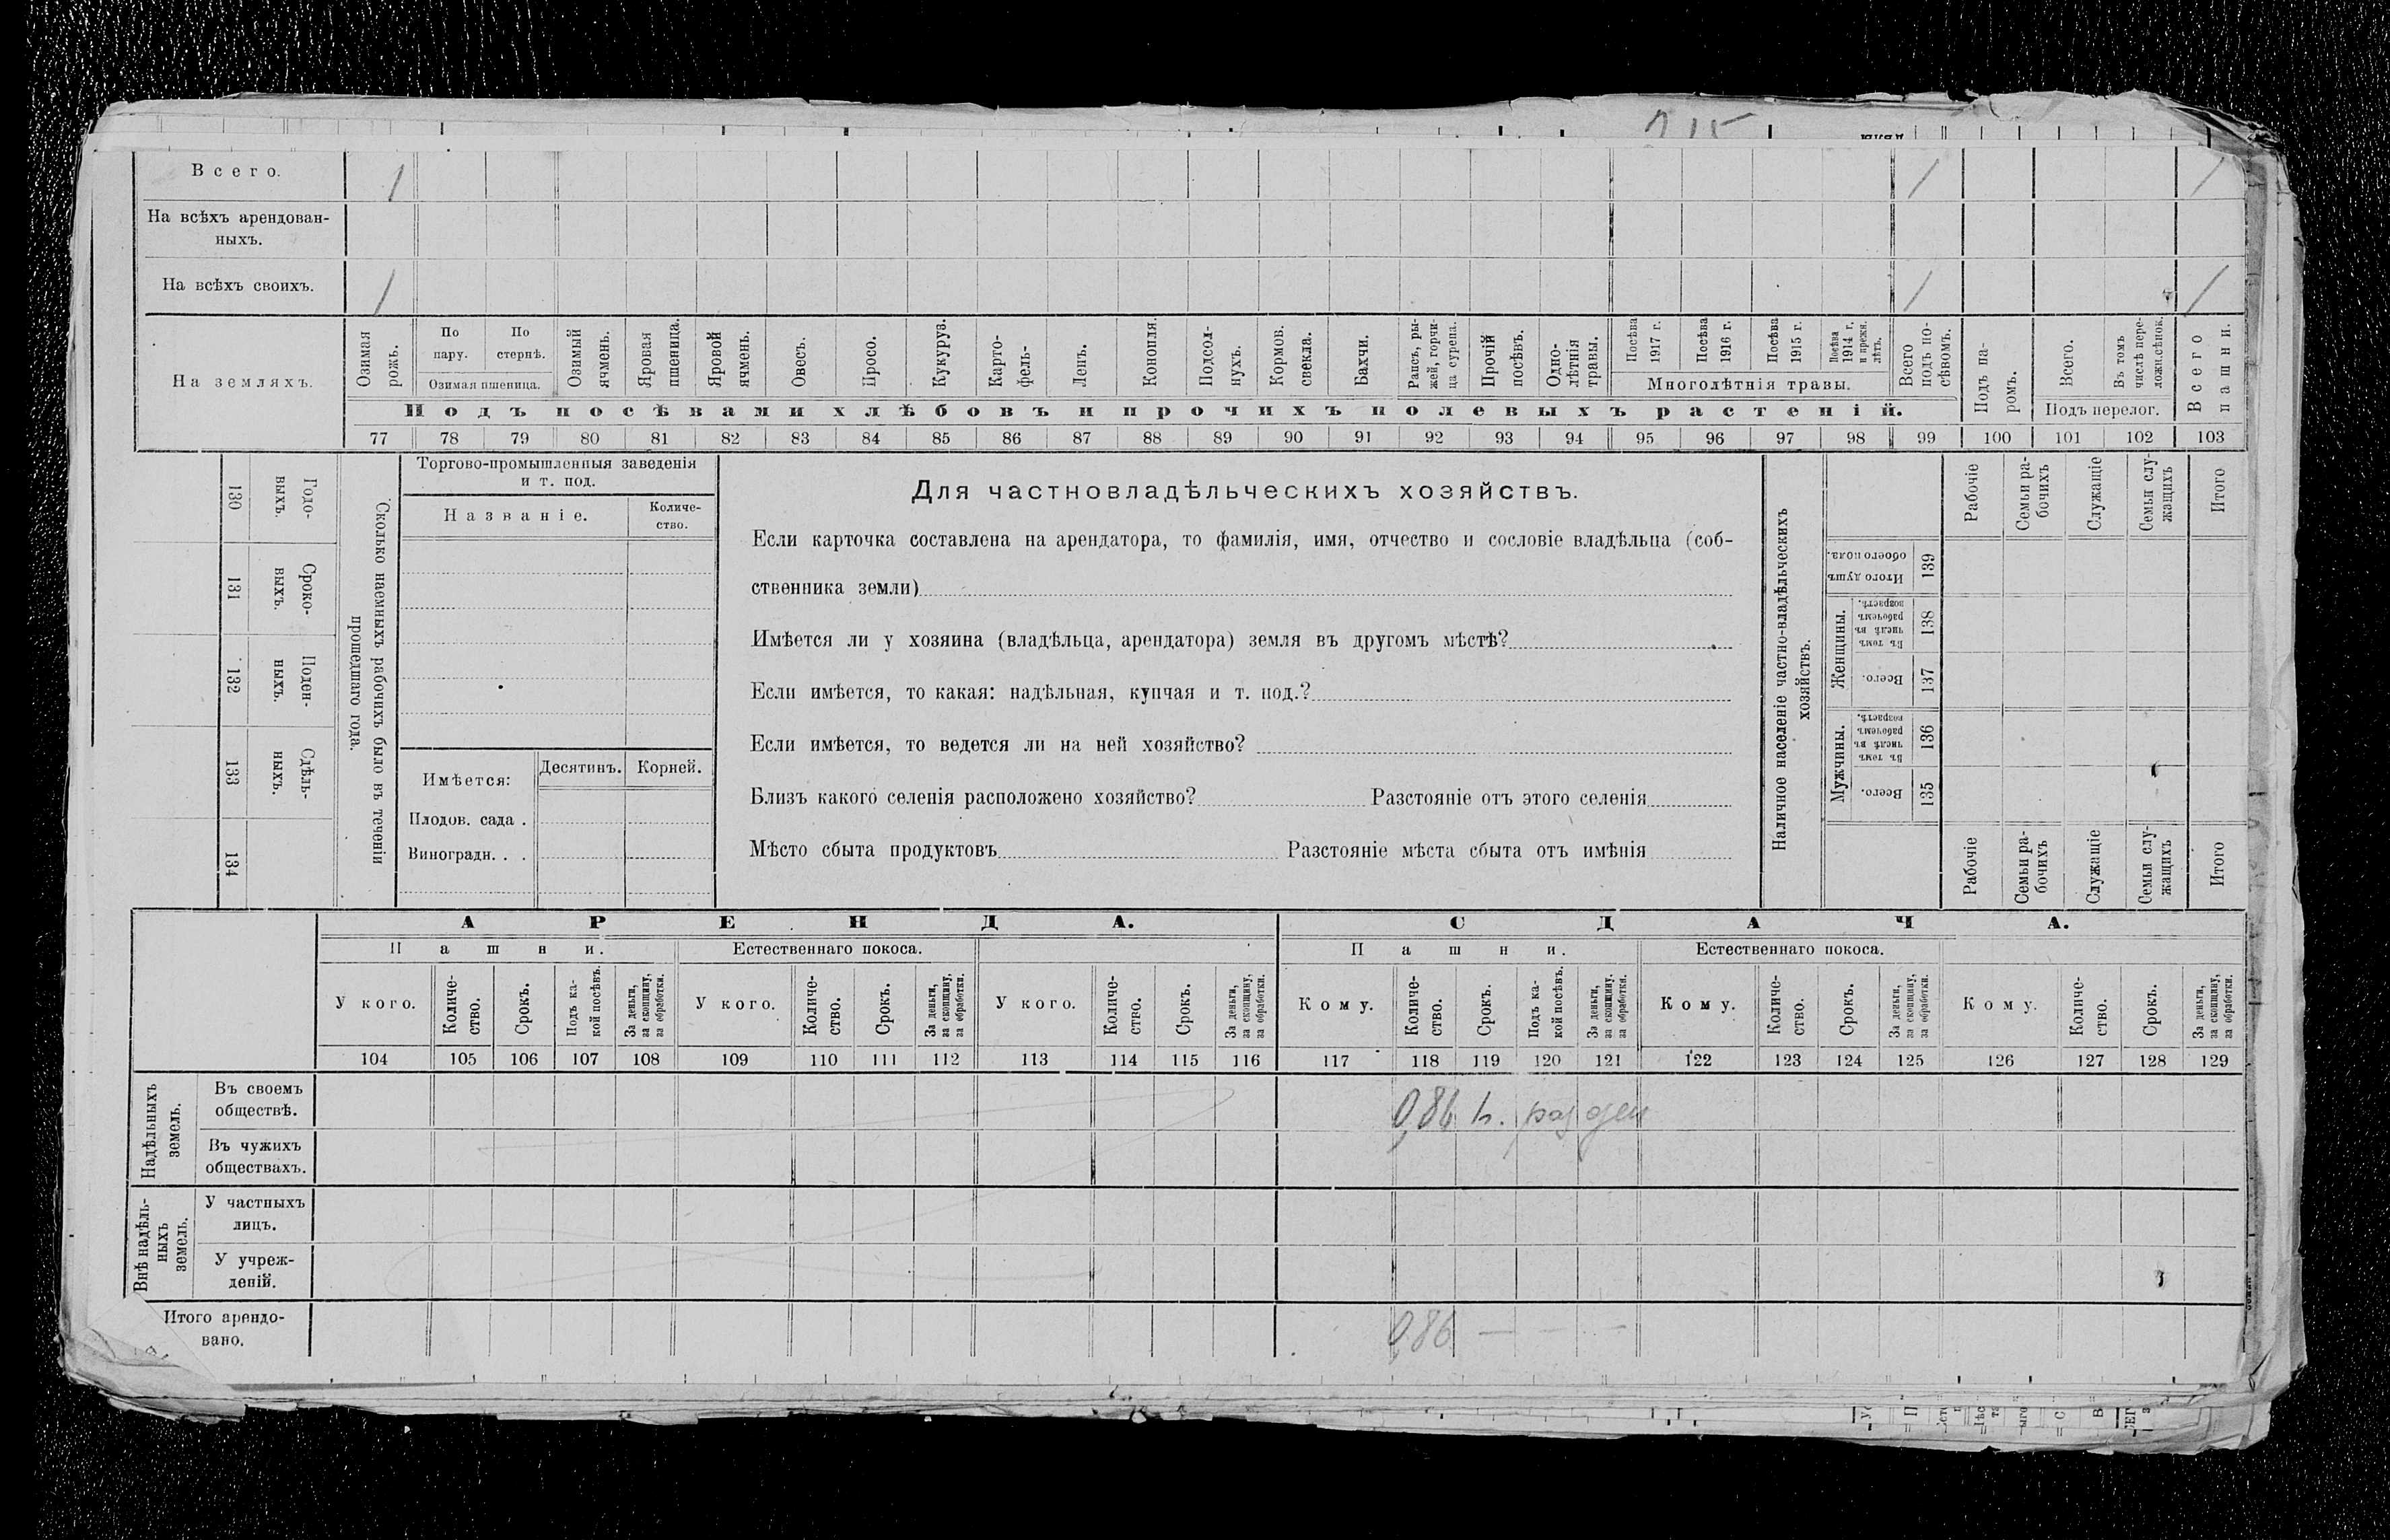 Всего. 1 1 1
На всѣхъ арендован-
ныхъ.
На всѣхъ своихъ. 1 1 1
На земляхъ.
Озимая рожь.
По пару.
По стернѣ.
Озимая пшеница.
Озимый ячмень.
Яровая пшеница.
Яровой ячмень.
Овесъ.
Просо.
Кукуруз.
Карто-
фель-
Ленъ.
Конопля.
Подсол-
нухъ.
Кормов. свекла.
Бахчи.
Рапсъ, ры-
жей, горчи-
ца сурепа.
Прочій посѣвъ.
Одно-
лѣтнія травы.
Посѣва 1917 г.
Посѣва 1916 г.
Посѣва 1915 г.
Посѣва 1914 г. и прежн. лѣтъ.
Многолѣтнія травы.
Всего подъ по-
сѣвомъ.
Подъ па-
ромъ.
Всего.
Въ томъ числѣ пере-
лож.сѣнок.
Подъ перелог.
Всего пашни.
Подъ посѣвами хлѣбовъ и прочихъ полевыхъ растеній.
77 78 79 80 81 82 83 84 85 86 87 88 89 90 91 92 93 94 95 96 97 98 99 100 101 102 103
130 Годо-
выхъ.
131 Сроко-
выхъ.
132 Поден-
ныхъ.
133 Сдѣль-
ныхъ.
134
Сколько наемныхъ рабочихъ было въ теченіи
прошедшаго года.
Торгово-промышленныя заведенія
и т. под.
Названіе.
Количе-
ство.
Имѣется:
Десятинъ. Корней.
Плодов. сада .
Виноградн. . .
Для частновладѣльческихъ хозяйствъ.
Если карточка составлена на арендатора, то фамилія, имя, отчество и сословіе владѣльца (соб-
ственника земли)
Имѣется ли у хозяина (владѣльца, арендатора) земля въ другомъ мѣстѣ?
Если имѣется, то какая: надѣльная, купчая и т. под.?
Если имѣется, то ведется ли на ней хозяйство?
Близъ какого селенія расположено хозяйство? Разстояніе отъ этого селенія
Мѣсто сбыта продуктовъ Разстояніе мѣста сбыта отъ имѣнія
Наличное населеніе частно-владѣльческихъ
хозяйствъ.
Рабочіе
Семьи ра-
бочихъ
Служащіе
Семьи слу-
жащихъ
Итого
Итого душъ обоего пола. 139
Женщины.
Въ томъ числѣ въ рабочемъ возрастѣ. 138
Всего. 137
Мужчины.
Въ томъ числѣ въ рабочемъ возрастѣ. 136
Всего. 135
Рабочіе
Семьи ра-
бочихъ
Служащіе
Семьи слу-
жащихъ
Итого
АРЕНДА. СДАЧА.
Пашни. Естественнаго покоса. Пашни. Естественнаго покоса.
У кого.
Количе-
ство.
Срокъ.
Подъ ка-
кой посѣвъ.
За деньги,
за скопщину,
за обработки.
У кого.
Количе-
ство.
Срокъ.
За деньги,
за скопщину,
за обработки.
У кого.
Количе-
ство.
Срокъ.
За деньги,
за скопщину,
за обработки.
Кому.
Количе-
ство.
Срокъ.
Подъ ка-
кой посѣвъ.
За деньги,
за скопщину.
за обработки.
Кому.
Количе-
ство.
Срокъ.
За деньги,
за скопщину,
за обработки.
Кому.
Количе-
ство.
Срокъ.
За деньги,
за скопщину,
за обработки.
104 105 106 107 108 109 110 111 112 113 114 115 116 117 118 119 120 121 122 123 124 125 126 127 128 129
Надѣльныхъ
земель.
Въ своемъ
обществѣ. 0,86
Въ чужихъ
обществахъ.
Внѣ надѣль-
ныхъ
земель.
У частныхъ
лицъ.
У учреж-
деній.
Итого арендо-
вано. 0,86 — — —